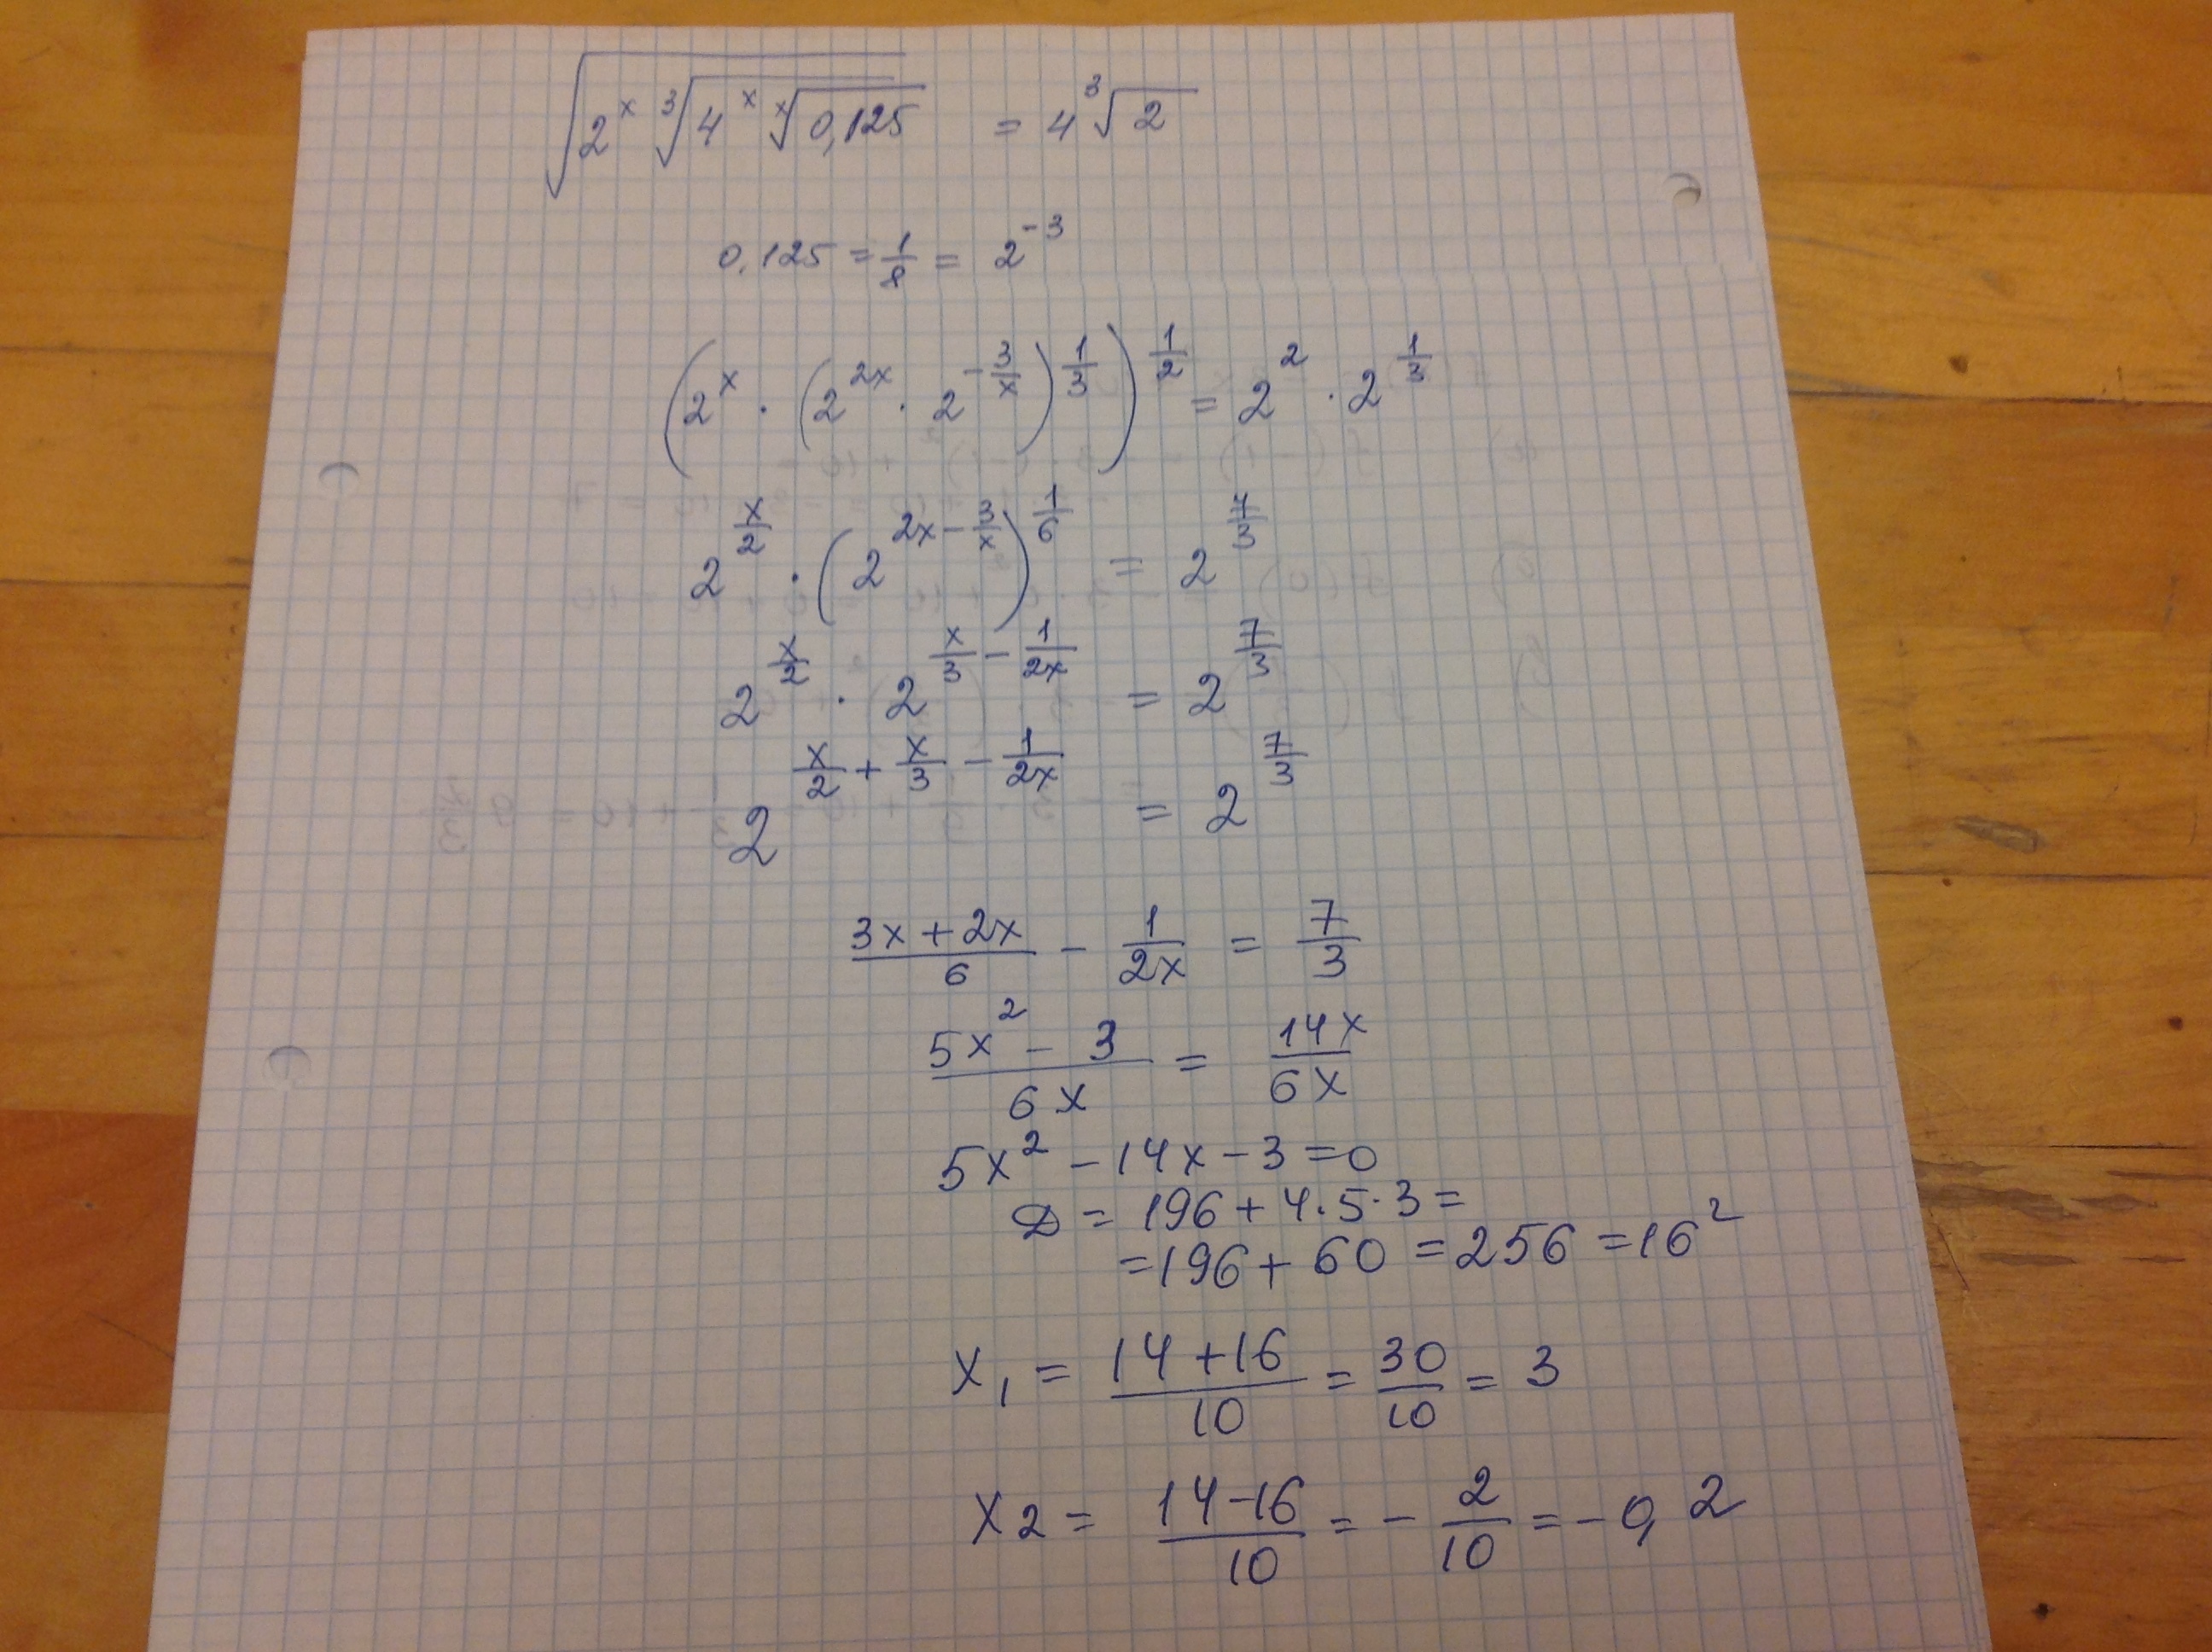 √(2^x ∛(4^x ˣ√(0,125))) = 4 ∛2
0,125 = 1/8 = 2^-3
(2^x · (2^2x · 2^-3/x)^1/3)^1/2 = 2^2 · 2^1/3
2^x/2 · (2^2x-3/x)^1/6 = 2^7/3
2^x/2 · 2^x/3 - 1/2x = 2^7/3
2^x/2 + x/3 - 1/2x = 2^7/3
(3x+2x)/6 - 1/2x = 7/3
(5x^2 - 3)/6x = 14x/6x
5x^2 - 14x - 3 = 0
D = 196 + 4·5·3 =
= 196 + 60 = 256 = 16^2
x1 = (14+16)/10 = 30/10 = 3
x2 = (14-16)/10 = - 2/10 = -0,2